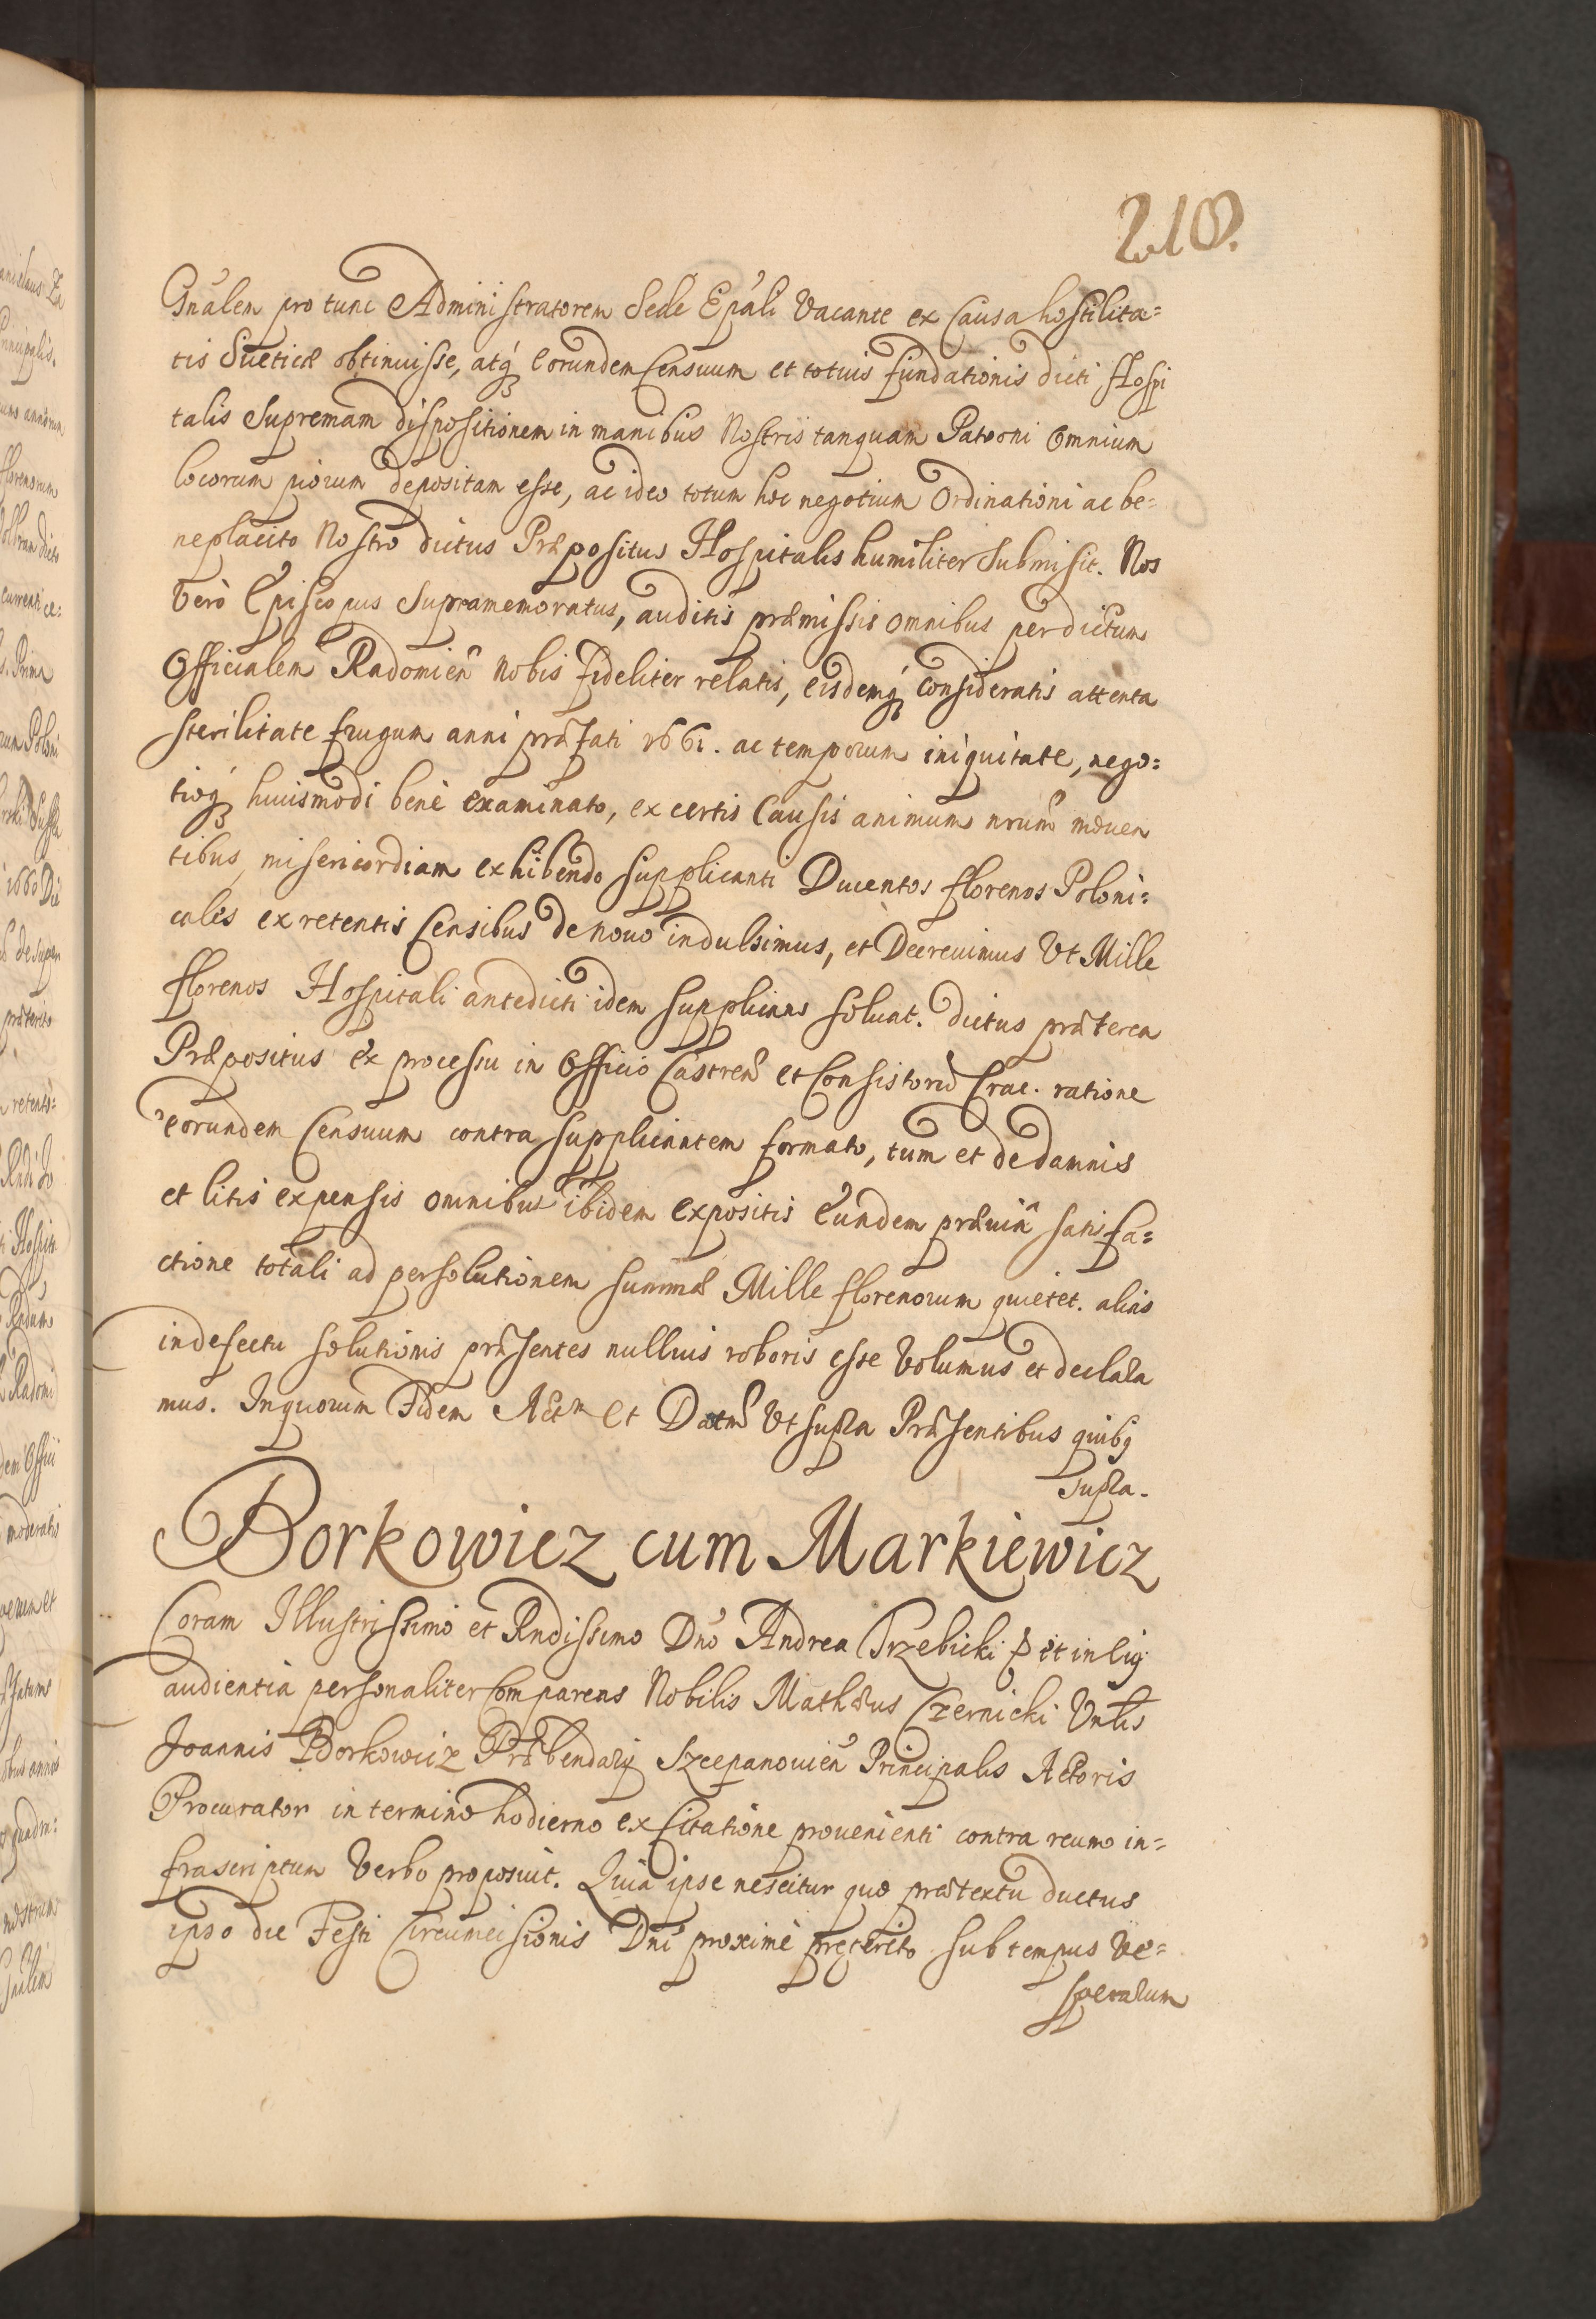 218.
Gnalem pro tunc Administratorem Sede Epali Vacante ex Causa hostilita=
tis Sueticæ obtinuisse, atq́ eorundem Censuum et totius fundationis dicti Hospi
talis Supremam dispositionem in manibus Nostris tanquam Patroni omnium
locorum piorum depositam esse, ac ideo totum hoc negotium Ordinationi ac be=
neplacito Nostro dictus Præpositus Hospitalis humiliter Submisit. Nos
Verò Episcopus Supramemoratus, auditis præmissis omnibus per dictum
Officialem Radomien̄ Nobis fideliter relatis, eisdemq́ consideratis attenta
sterilitate frugum anni præfati 1661. ac temporum iniquitate, nego=
tioq́ huiusmodi bene examinato, ex certis Causis animum nrum̄ mouen
tibus, misericordiam exhibendo Supplicanti Ducentos florenos Poloni=
cales ex retentis Censibus de nouo indulsimus, et Decreuimus Vt Mille
florenos Hospitali antedicti idem Supplicans soluat. dictus præterea
Præpositus ex processu in Officio Castren̄ et Consistorij Crac. ratione
eorundem Censuum contra Supplicantem formato, tum et de damnis
et litis expensis omnibus ibidem expositis Eundem præuia satisfa=
ctione totali ad persolutionem summæ Mille florenorum quietet. alias
in defectu solutionis præsentes nullius roboris esse Volumus et declara
mus. In quorum Fidem Actm et Datm̄ Vt supra Præsentibus quibq
supra.
Borkowicz cum Markiewicz
Coram Illustrissimo et Rndissimo Dno Andrea Trzebicki et in Eiq
audientia personaliter Comparens Nobilis Mathæus Czernicki Vnlis
Joannis Borkowicz Præbendarij Szcepanouien̄ Principalis Actoris
Procurator in termino hodierno ex Citatione prouenienti contra reum in=
frascriptum Verbo proposuit. Quia ipse nescitur quo prætextu ductus
ipso die Festi Circumcisionis Dni proximè præterito sub tempus Ve=
sperarum